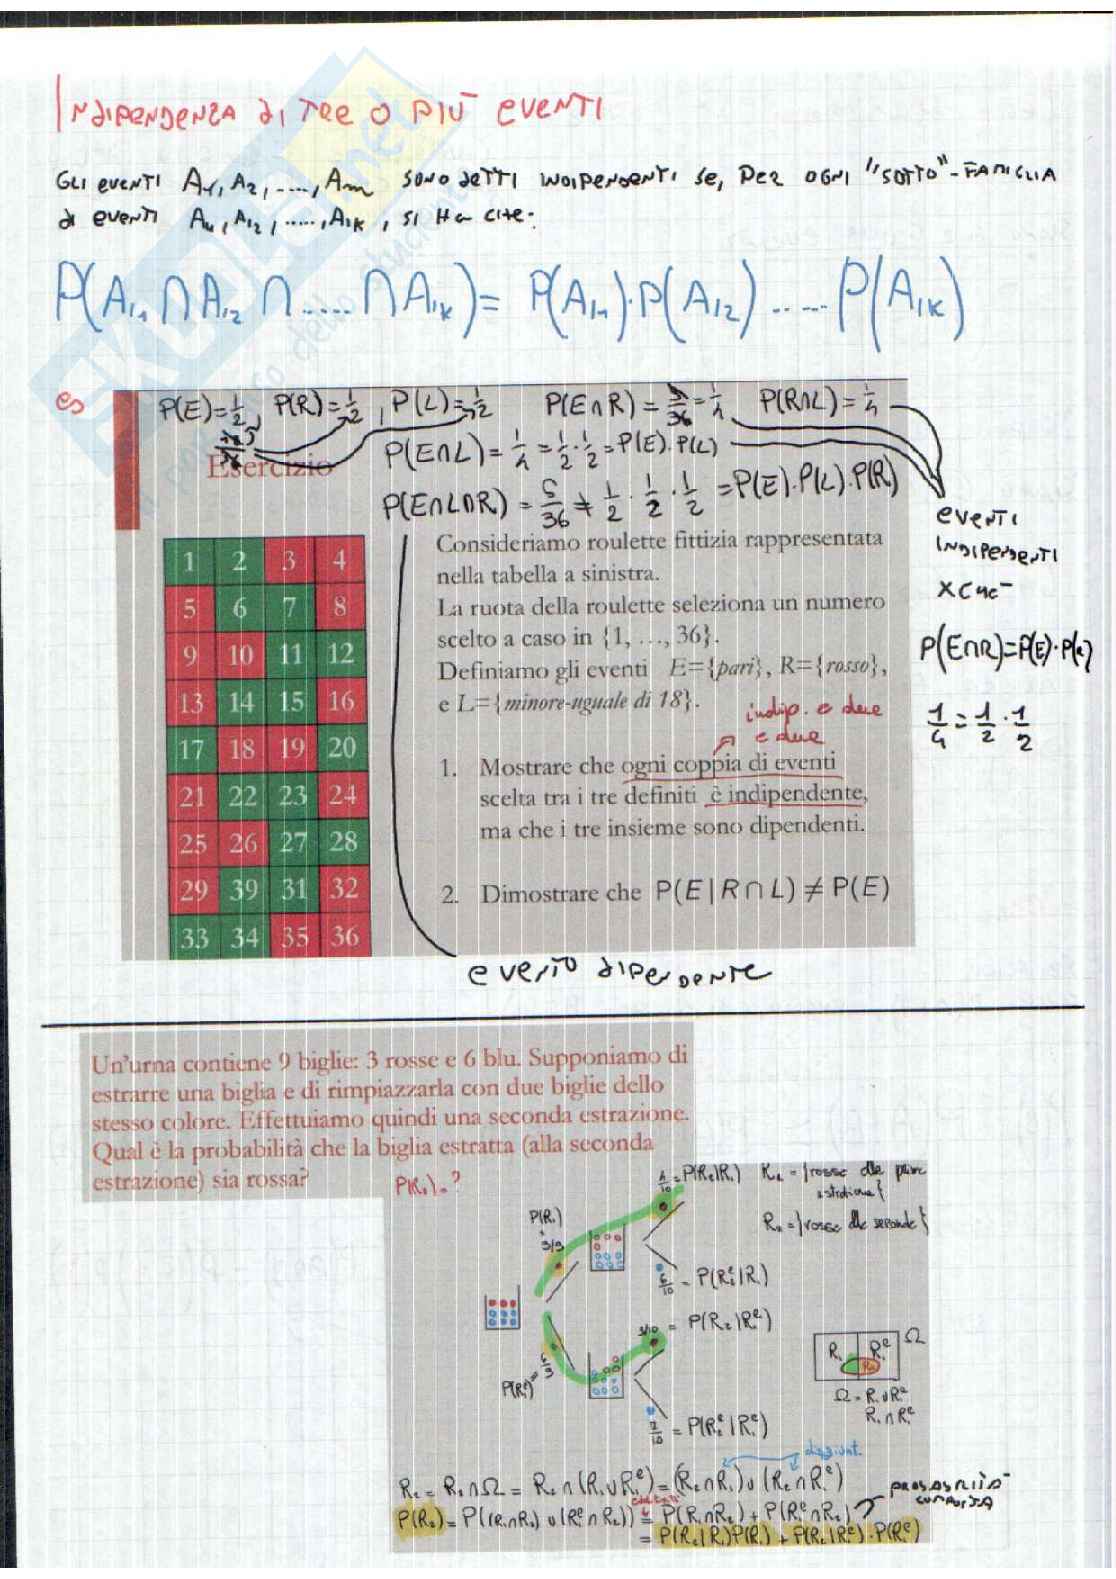 INDIPENDENZA DI TRE O PIÙ EVENTI
GLI EVENTI A₁, A₂, ...., Am SONO DETTI INDIPENDENTI SE, PER OGNI "SOTTO"-FAMIGLIA
DI EVENTI Ai₁, Ai₂, ....., Aik, SI HA CHE:
P(Ai₁ ∩ Ai₂ ∩ ..... ∩ Aik) = P(Ai₁)·P(Ai₂) ..... P(Aik)
es
P(E)=1/2, P(R)=1/2, P(L)=1/2 P(E∩R) = 9/36 = 1/4 P(R∩L) = 1/4
P(E∩L) = 1/4 = 1/2 · 1/2 = P(E).P(L)
Esercizio
P(E∩L∩R) = 5/36 ≠ 1/2 · 1/2 · 1/2 = P(E).P(L).P(R)
EVENTI
INDIPENDENTI
P(E∩R)=P(E)·P(R)
1/4 = 1/2 · 1/2
1 2 3 4
5 6 7 8
9 10 11 12
13 14 15 16
17 18 19 20
21 22 23 24
25 26 27 28
29 39 31 32
33 34 35 36
Consideriamo roulette fittizia rappresentata
nella tabella a sinistra.
La ruota della roulette seleziona un numero
scelto a caso in {1, ..., 36}.
Definiamo gli eventi E={pari}, R={rosso},
e L={minore-uguale di 18}.
indip. a due
a due
1. Mostrare che ogni coppia di eventi
scelta tra i tre definiti è indipendente,
ma che i tre insieme sono dipendenti.
2. Dimostrare che P(E|R∩L) ≠ P(E)
EVENTO DIPENDENTE
Un'urna contiene 9 biglie: 3 rosse e 6 blu. Supponiamo di
estrarre una biglia e di rimpiazzarla con due biglie dello
stesso colore. Effettuiamo quindi una seconda estrazione.
Qual è la probabilità che la biglia estratta (alla seconda
estrazione) sia rossa?
P(R₂)=?
4/10 = P(R₂|R₁) R₁ = {rosse alla prima
estrazione}
R₂ = {rosse alla seconda}
P(R₁)
3/9
6/10 = P(R₂ᶜ|R₁)
3/10 = P(R₂|R₁ᶜ)
P(R₁ᶜ) = 6/9
7/10 = P(R₂ᶜ|R₁ᶜ)
R₁ R₁ᶜ Ω
R₂
Ω = R₁∪R₁ᶜ
R₁∩R₁ᶜ
disgiunt.
R₂ = R₂∩Ω = R₂∩(R₁∪R₁ᶜ) = (R₂∩R₁)∪(R₂∩R₁ᶜ)
PROBABILITÀ
COMPOSTA
P(R₂) = P((R₁∩R₂)∪(R₁ᶜ∩R₂)) = P(R₁∩R₂) + P(R₁ᶜ∩R₂)
= P(R₂|R₁)P(R₁) + P(R₂|R₁ᶜ)·P(R₁ᶜ)